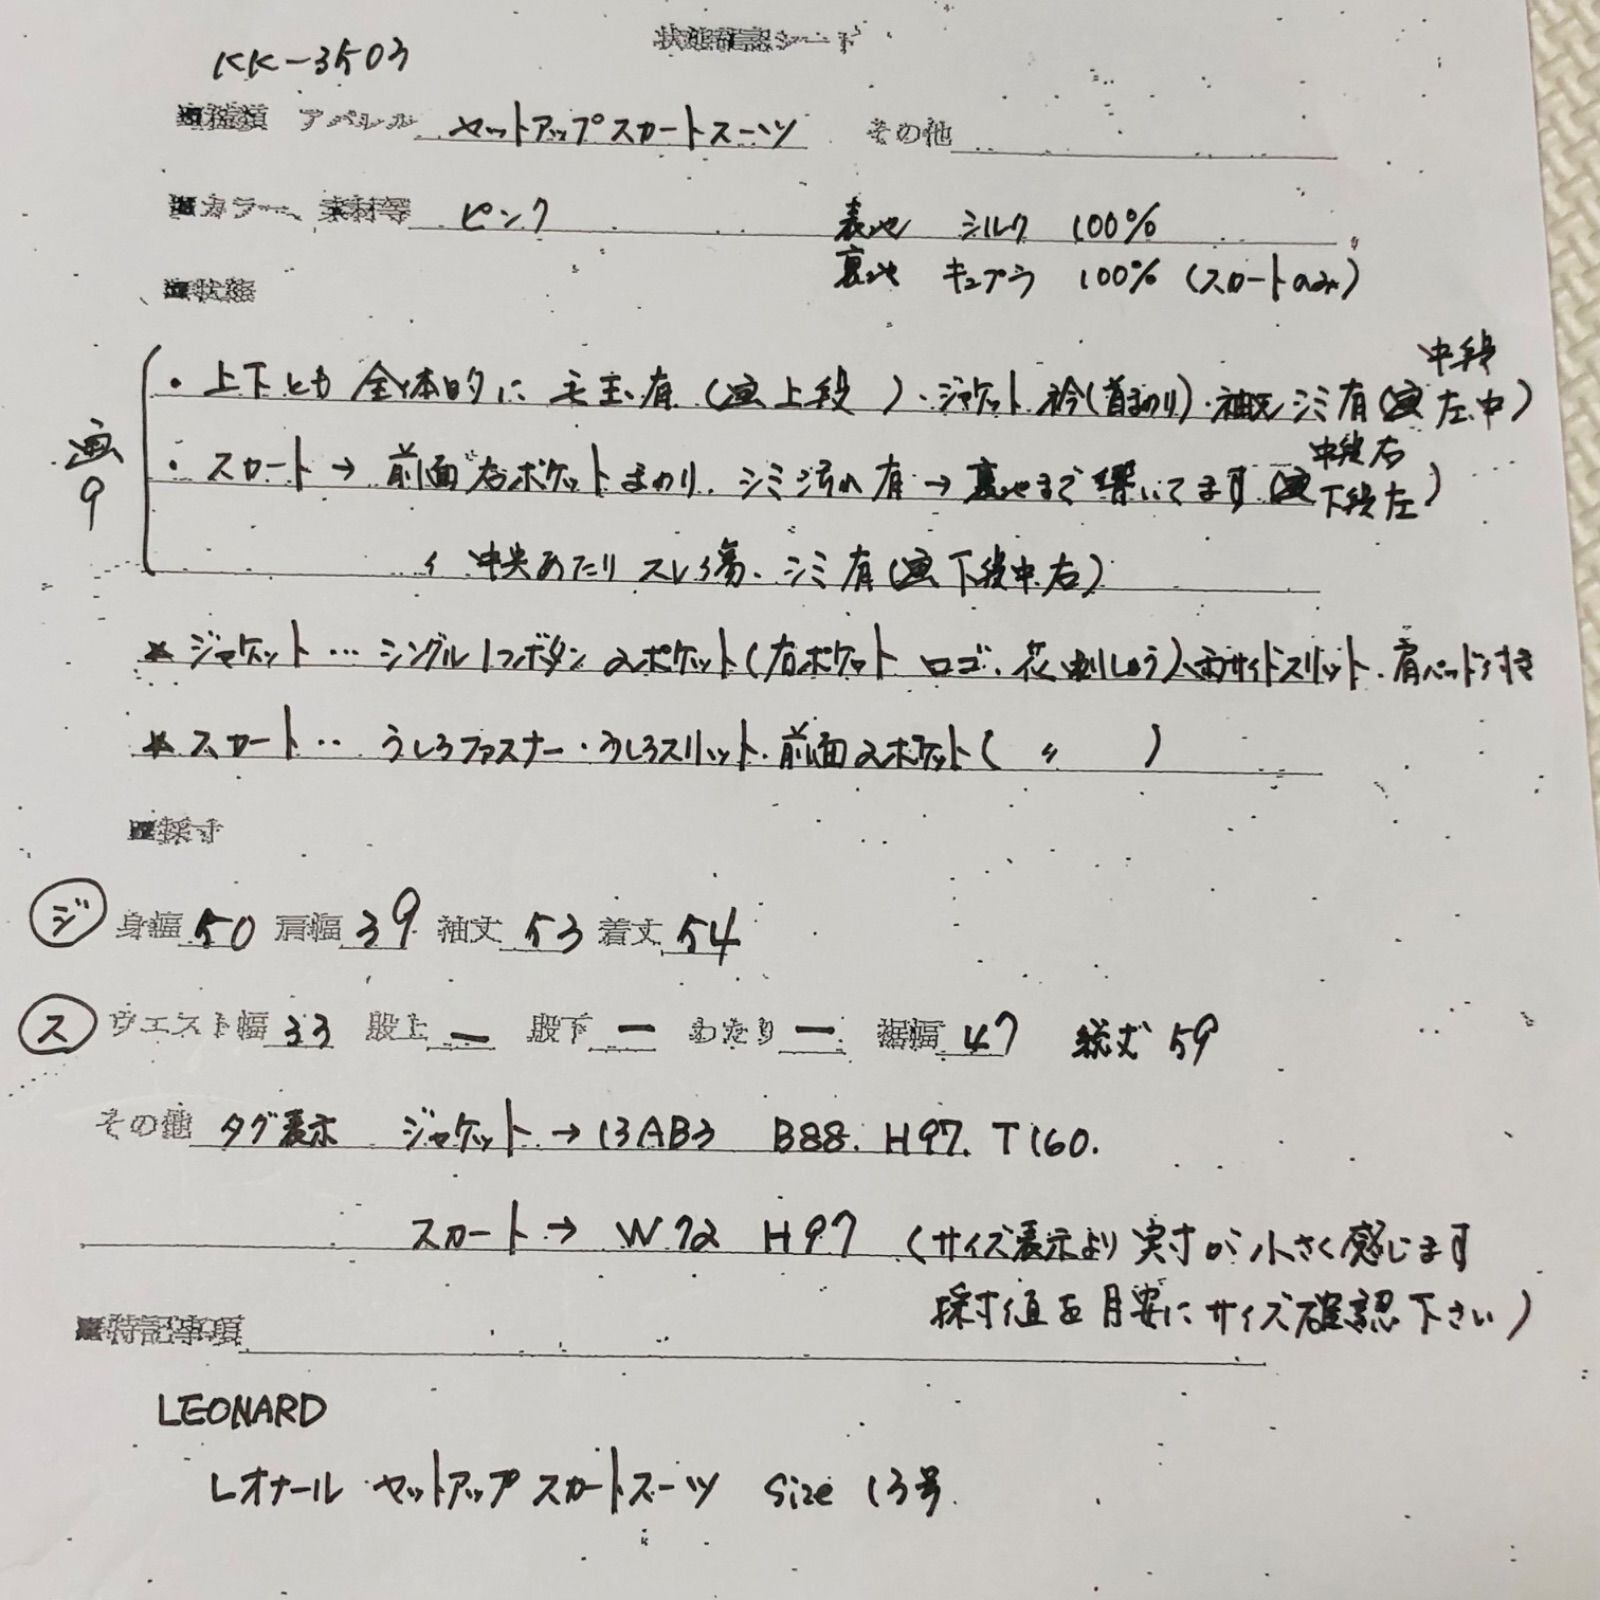 状態確認シート
KK-3503
■種類 アパレル セットアップスカートスーツ その他
■カラー、素材等 ピンク 表地 シルク 100%
裏地 キュプラ 100% (スカートのみ)
■状態
画9
・上下とも 全体的に 毛玉有 (画上段 )・ジャケット 衿(首まわり)・袖元 シミ有(画中段左.中)
・スカート→ 前面右ポケットまわり、シミ汚れ有→裏地まで響いてます(画中段右下段左)
〃 中央あたり スレ傷、シミ有(画下段中.右)
*ジャケット… シングル1コボタン 2ポケット(右ポケット ロゴ、花刺しゅう)、両サイドスリット、肩パット付き
*スカート… うしろファスナー・うしろスリット、前面2ポケット( 〃 )
■採寸
ジ 身幅 50 肩幅 39 袖丈 53 着丈 54
ス ウエスト幅 33 股上 ー 股下 ー わたり ー 裾幅 47 総丈 59
その他 タグ表示 ジャケット→13AB3 B88. H97. T160.
スカート→ W72 H97 (サイズ表示より 実寸が小さく感じます
採寸値を目安にサイズ確認下さい)
■特記事項
LEONARD
レオナール セットアップスカートスーツ Size 13号